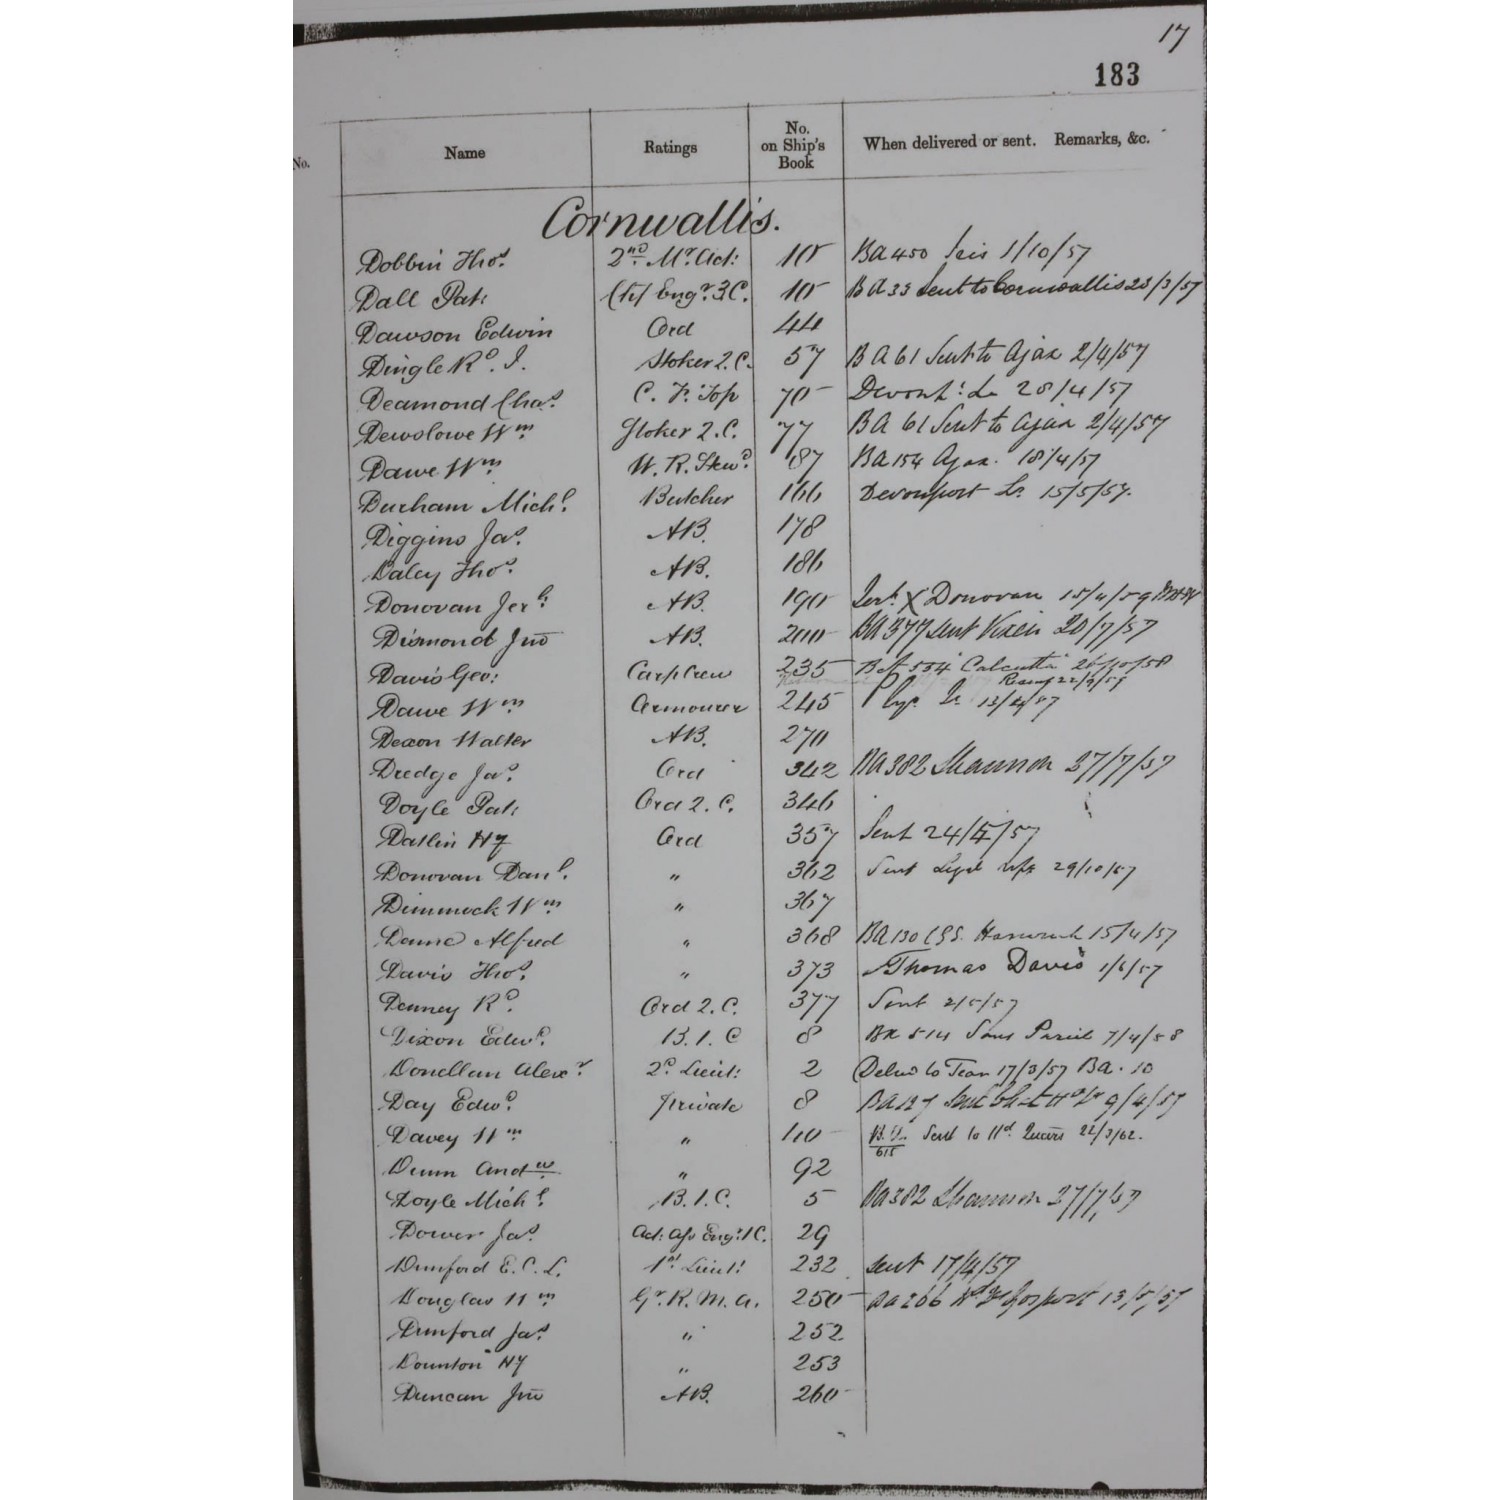 17
183
No. Name Ratings No. on Ship's Book When delivered or sent. Remarks, &c.
Cornwallis.
Dobbin Thos. 2nd Mr. Act: 10 BA 450 Isis 1/10/57
Dall Pat: Engr. 3 C. 10 BA 33 Sent to Cornwallis 28/3/57
Dawson Edwin Ord 44
Dingle Rd. J. Stoker 2. C. 57 BA 61 Sent to Ajax 2/4/57
Deamond Chas. C. F. Top 70 Devonpt: Lr 28/4/57
Dewslowe Wm. Stoker 2. C. 77 BA 61 Sent to Ajax 2/4/57
Dawe Wm. W. R. Stewd. 87 BA 154 Ajax. 18/4/57
Durham Michl. Butcher 166 Devonport Lr. 15/5/57.
Diggins Jas. AB. 178
Daley Thos. AB. 186
Donovan Jerh: AB. 190 Jerh. X Donovan 15/4/59
Dismond Jno AB. 200 BA 377 sent Vixen 20/7/57
Davis Geo: Carp Crew 235 Calcutta
Dawe Wm Armourer 245 Lr 13/4/57
Dexon Walter AB. 270
Dredge Jas. Ord 342 BA 382 Shannon 27/7/57
Doyle Pat: Ord 2. C. 346
Datlin Hy Ord 357 Sent 24/5/57
Donovan Danl. " 362 Sent 29/10/57
Dimmock Wm " 367
Alfred " 368 BA 130 Harwich 15/4/57
Davis Thos. " 373 Thomas Davis 1/6/57
Denney Rd. Ord 2. C. 377 Sent 2/5/57
Dixon Edwd. B. 1. C 8 BA 514 Sans Pareil 7/4/58
Donellan Alexr. 2d. Lieut: 2 Deld to Tear 17/3/57 BA. 10
Day Edwd. Private 8 BA 127 9/4/57
Davey Wm " 40 Sent to Hd. Quars 22/3/62.
Dunn Andw " 92
Doyle Michl. B. 1. C. 5 BA 382 Shannon 27/7/57
Dower Jas. Act: Ass Engr. 1 C. 29
Dunford E. C. L. 1st Lieut: 232 sent 17/4/57
Douglas Wm Gr. R. M. A. 250 BA 266 Gosport 13/5/57
Dunford Jas. " 252
Dounton Hy " 253
Duncan Jno AB. 260